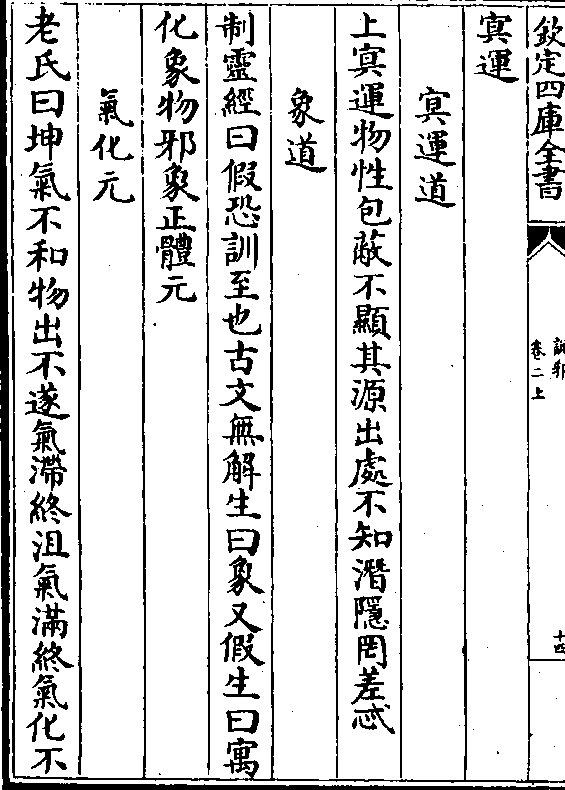 欽定四庫全書
說郛
卷二上
十四
㝠運
㝠運道
上㝠運物性包蔽不顯其源出處不知潛隱罔差忒
象道
制靈經曰假恐訓至也古文無解生曰象又假生曰寓
化象物邪象正體元
氣化元
老氏曰坤氣不和物出不遂氣滯終沮氣滿終氣化不